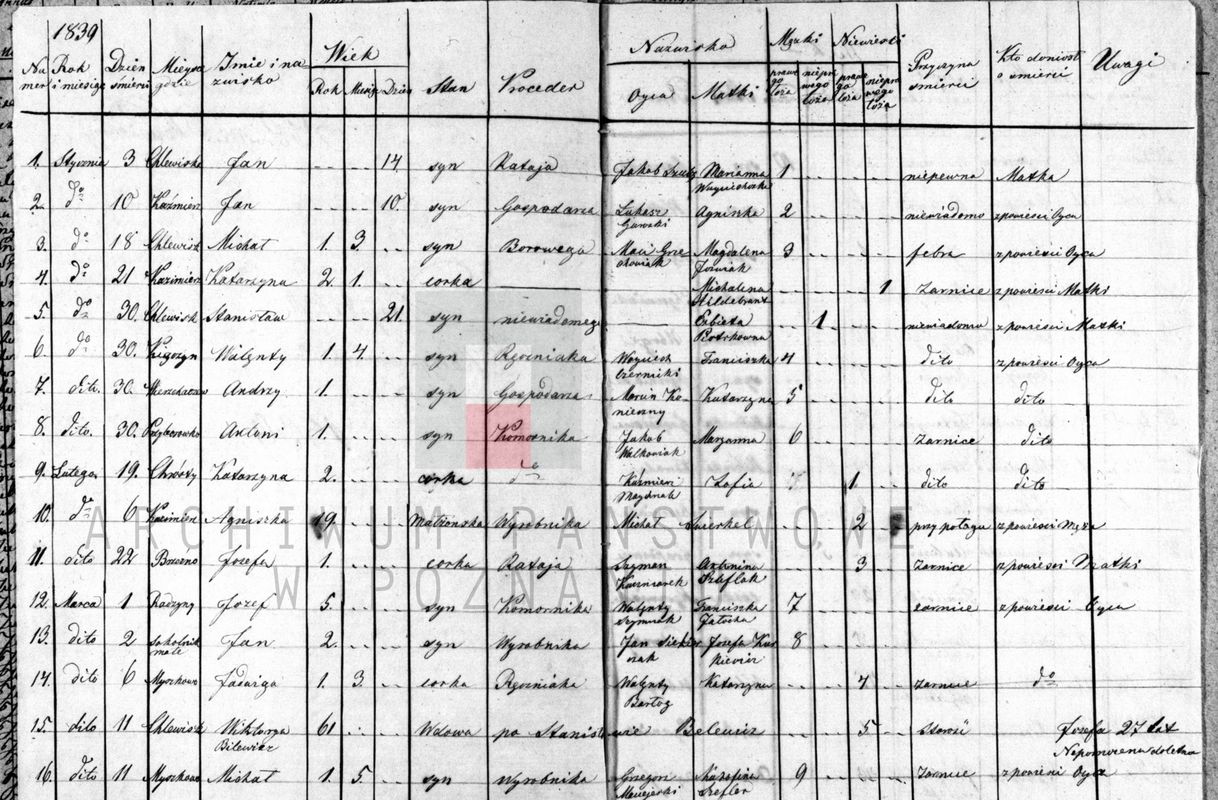 1839
Nu mer
Rok i miesiąc
Dzień śmierci
Mieysce gdzie
Imie i na zwisko
Wiek
Rok
Miesiąc
Dzien
Stan
Proceder
Nazwisko
Oyca
Matki
Męzki
prawe go łoża
niepra wego łoża
Niewieski
prawe go łoża
niepra wego łoża
Przyczyna śmierci
Kto doniosł o smierci
Uwagi
1. Stycznia 3 Chlewiska Jan 14. syn Rataja Jakob Marianna 1 niepewna Matka
2. do 10 Kazmierz Jan 10. syn Gospodarza Łukasz Agniszka 2 niewiadomo z powiesci Oyca
3. do 18 Chlewisk Michał 1. 3. syn Borowego Magdalena 3 febra z powiesci Oyca
4. do 21 Kazimierz Katarzyna 2. 1. corka Michalena Hildebrant 1 Zarnice z powiesci Matki
5. do 30. Chlewisk Stanisław 21. syn niewiadomego Elzbieta Piotrkowna 1 niewiadomo z powiesci Matki
6. do 30. Walenty 1. 4. syn Ręczniaka Woyciech Czernicki Franciszka 4 dito z powiesci Oyca
7. dito. 30. Andrzy 1. syn Gospodarza Marcin Ko nieczny Katarzyna 5 dito dito
8. dito. 30. Przyborowko Antoni 1. syn Komornika Jakob Walkowiak Maryanna 6 Zarnice dito
9. Lutego 19. Katarzyna 2. corka do Kaźmierz Zofia 1 dito dito
10. do 6 Kazimierz Agniszka 19. Małzonka Wyrobnika Michał Swierkel 2 przy połogu z powiesci Męża
11. dito 22 Brzezno Jozefa 1. corka Rataja Szyman Kazmierek Antonina Szeflak 3 Zarnice z powiesci Matki
12. Marca 1 Radzyny Jozef 5. syn Komornika Walenty Szymczak Franciszka 7 zarnice z powiesci Oyca
13. dito 2 sokolnik małe Jan 2. syn Wyrobnika Jan Siekier czak Jozefa Kur kiewicz 8
14. dito 6 Myszkowo Jadwiga 1. 3. corka Ręczniaka Walenty Bartog Katarzyna 4 Zarnice do
15. dito 11 Chlewisk Wiktorya Bilewicz 61 Wdowa po Stanisławie Belewicz 5 Starość Jozefa 27 lat Nepomucena doletna
16. dito 11 Myszkowo Michał 1. 5. syn Wyrobnika Grzegorz Maciejeski Szefler 9 Zarnice z powiesci Oyca
ARCHIWUM PAŃSTWOWE
W POZNANIU